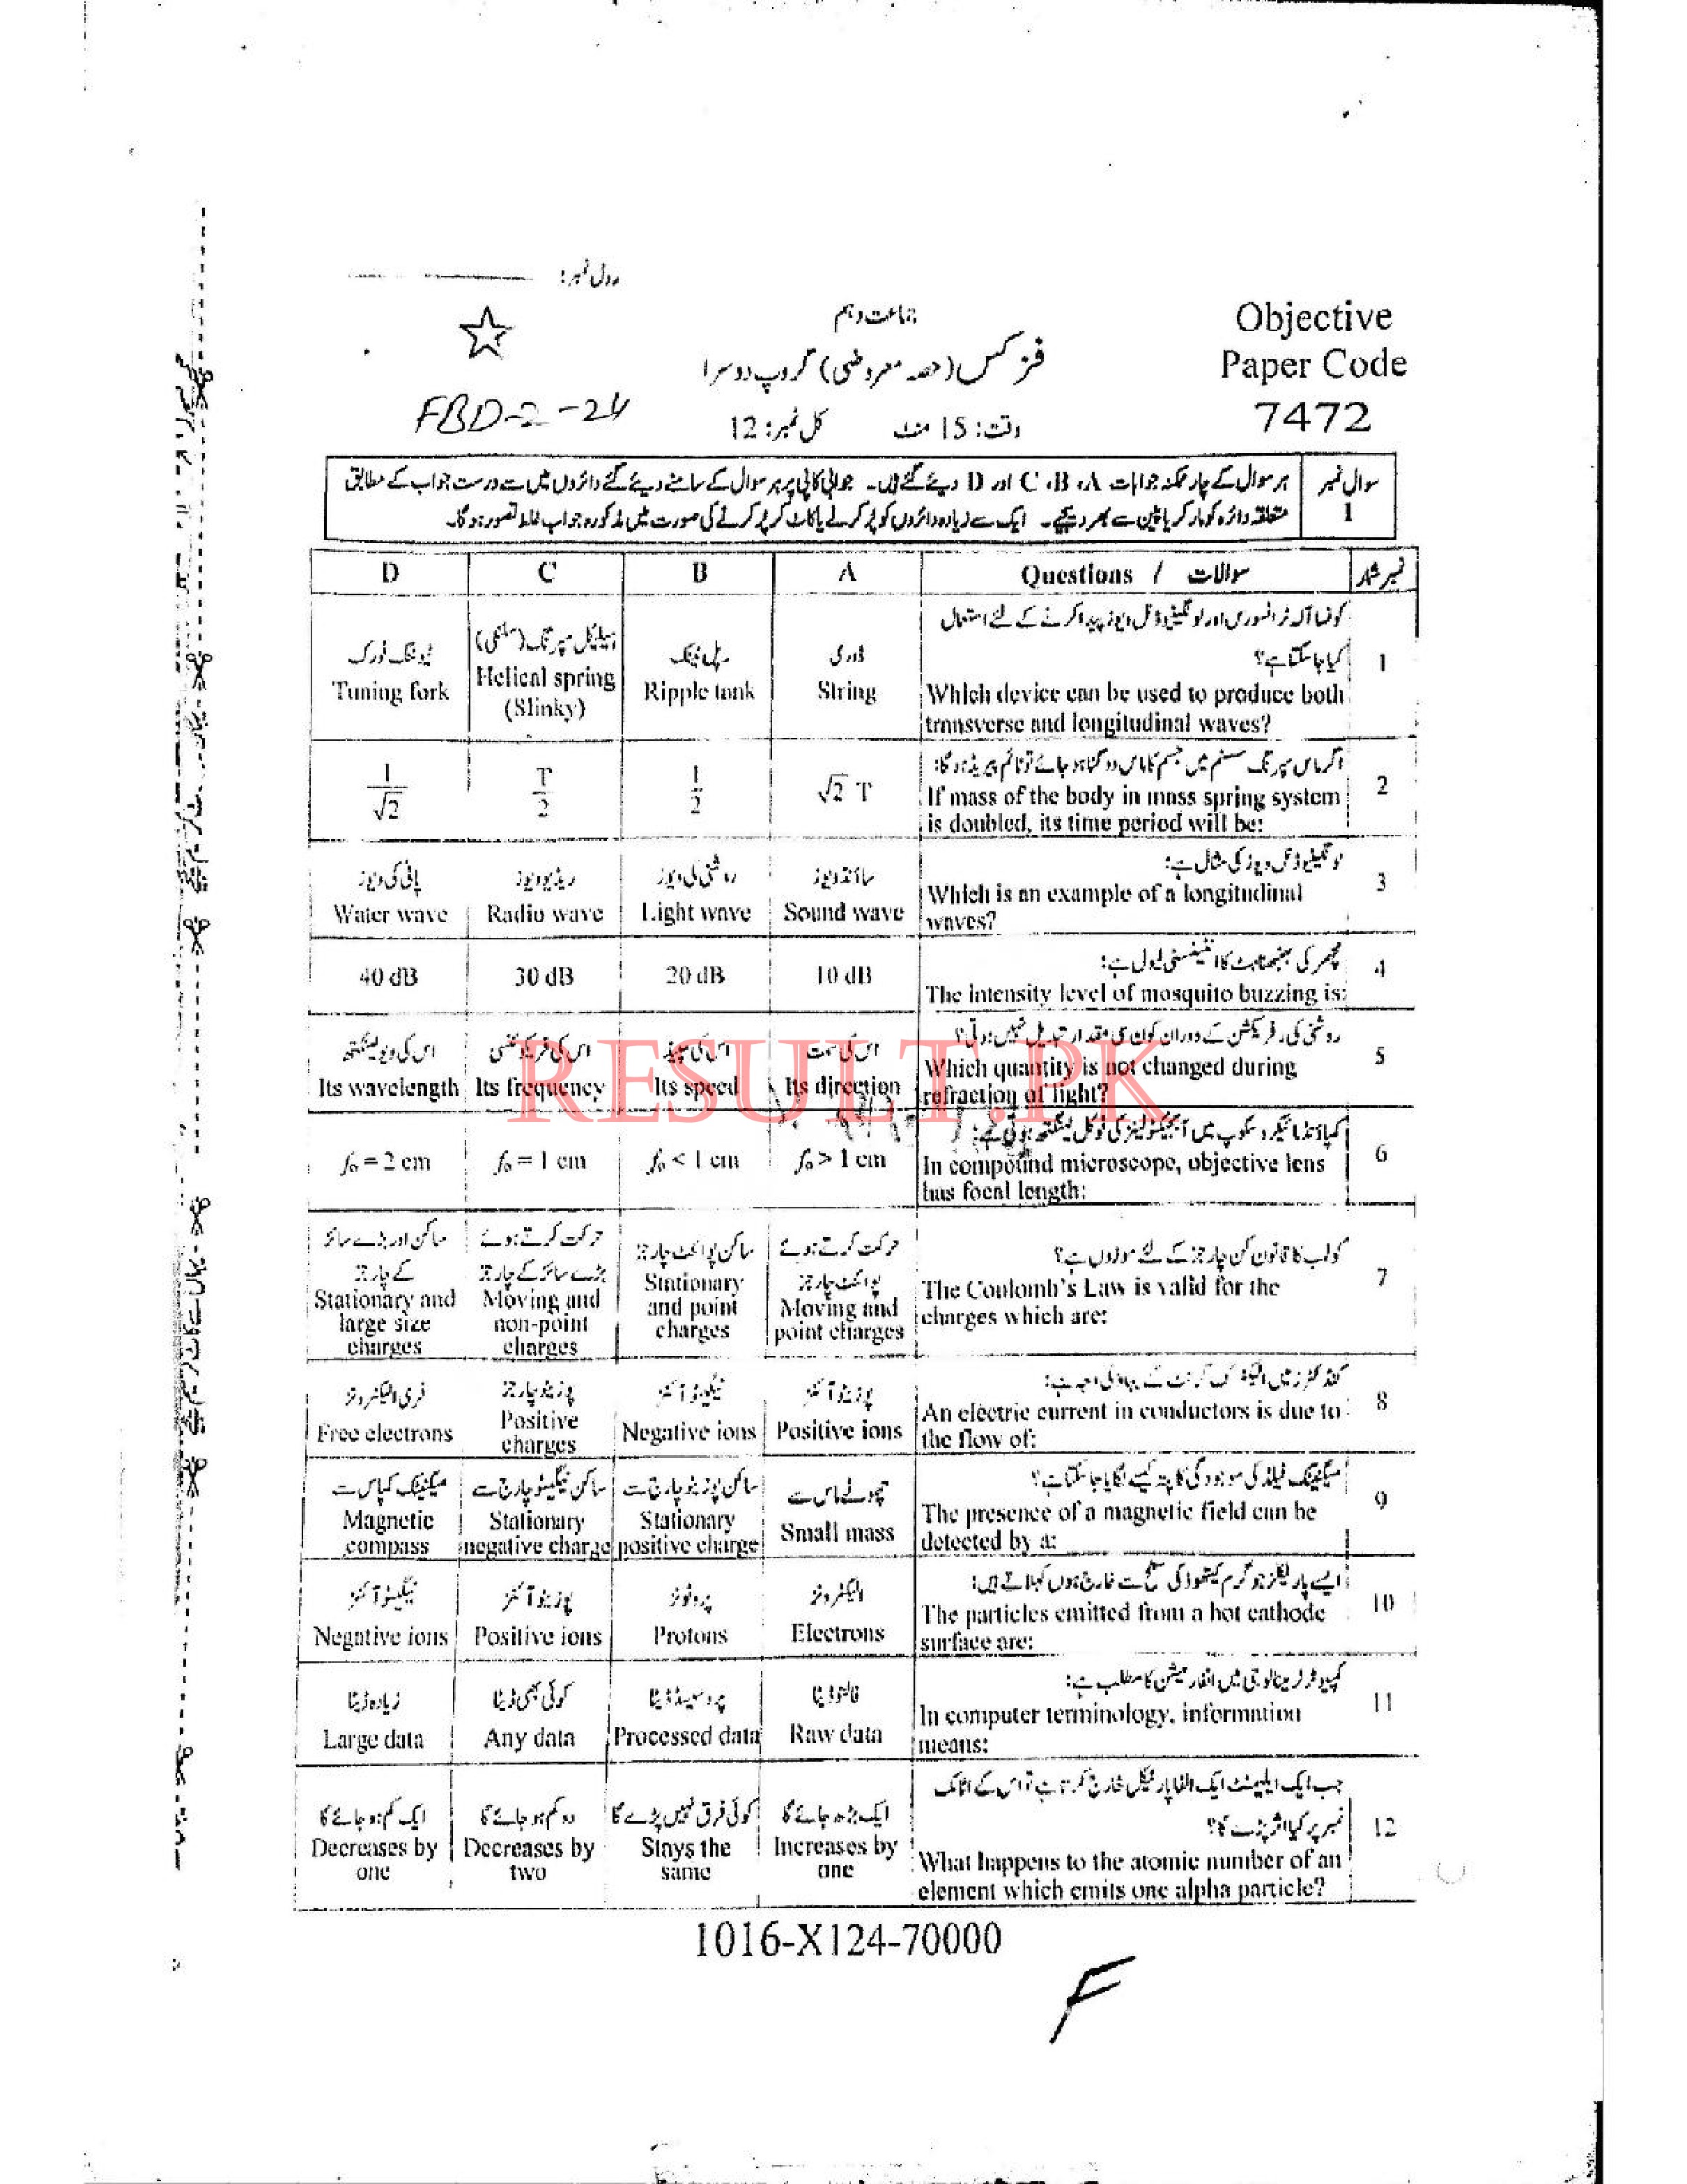 رول نمبر:
جماعت دہم
Objective
Paper Code
7472
فزکس (حصہ معروضی) گروپ دوسرا
FBD-2-24
وقت: 15 منٹ
کل نمبر: 12
سوال نمبر 1
ہر سوال کے چار ممکنہ جوابات C ،B ،A اور D دیئے گئے ہیں۔ جوابی کاپی پر ہر سوال کے سامنے دیئے گئے دائروں میں سے درست جواب کے مطابق
متعلقہ دائرہ کو مارکر یا پین سے بھر دیجیے۔ ایک سے زیادہ دائروں کو پُر کرنے یا کاٹ کر پُر کرنے کی صورت میں مذکورہ جواب غلط تصور ہوگا۔
D C B A Questions / سوالات نمبر شمار
1
کونسا آلہ ٹرانسورس اور لونگیٹیوڈنل ویوز پیدا کرنے کے لئے استعمال
کیا جا سکتا ہے؟
Which device can be used to produce both
transverse and longitudinal waves?
ڈوری
String
رپل ٹینک
Ripple tank
ہیلیکل سپرنگ (سلنکی)
Helical spring
(Slinky)
ٹیوننگ فورک
Tuning fork
2
اگر ماس سپرنگ سسٹم میں جسم کا ماس دوگنا ہو جائے تو ٹائم پیریڈ ہوگا:
If mass of the body in mass spring system
is doubled, its time period will be:
√2 T
1/2
T/2
1/√2
3
لونگیٹیوڈنل ویوز کی مثال ہے:
Which is an example of a longitudinal
waves?
ساؤنڈ ویوز
Sound wave
روشنی کی ویوز
Light wave
ریڈیو ویوز
Radio wave
پانی کی ویوز
Water wave
4
مچھر کی بھنبھناہٹ کا انٹینسٹی لیول ہے:
The intensity level of mosquito buzzing is:
10 dB
20 dB
30 dB
40 dB
5
روشنی کی رفریکشن کے دوران کون سی مقدار تبدیل نہیں ہوتی؟
Which quantity is not changed during
refraction of light?
اس کی سمت
Its direction
اس کی سپیڈ
Its speed
اس کی فریکوئنسی
Its frequency
اس کی ویو لینگتھ
Its wavelength
RESULT.PK
6
کمپاؤنڈ مائیکروسکوپ میں آبجیکٹو لینز کی فوکل لینگتھ ہوتی ہے:
In compound microscope, objective lens
has focal length:
fₒ > 1 cm
fₒ < 1 cm
fₒ = 1 cm
fₒ = 2 cm
7
کولمب کا قانون کن چارجز کے لئے موزوں ہے؟
The Coulomb's Law is valid for the
charges which are:
حرکت کرتے ہوئے
پوائنٹ چارجز
Moving and
point charges
ساکن پوائنٹ چارجز
Stationary
and point
charges
حرکت کرتے ہوئے
بڑے سائز کے چارجز
Moving and
non-point
charges
ساکن اور بڑے سائز
کے چارجز
Stationary and
large size
charges
8
کنڈکٹرز میں الیکٹرک کرنٹ کے بہاؤ کی وجہ ہے:
An electric current in conductors is due to
the flow of:
پوزیٹو آئنز
Positive ions
نیگیٹو آئنز
Negative ions
پوزیٹو چارجز
Positive
charges
فری الیکٹرونز
Free electrons
9
میگنیٹک فیلڈ کی موجودگی کا پتہ کیسے لگایا جا سکتا ہے؟
The presence of a magnetic field can be
detected by a:
چھوٹے ماس سے
Small mass
ساکن پوزیٹو چارج سے
Stationary
positive charge
ساکن نیگیٹو چارج سے
Stationary
negative charge
میگنیٹک کمپاس سے
Magnetic
compass
10
ایسے پارٹیکلز جو گرم کیتھوڈ کی سطح سے خارج ہوں کہلاتے ہیں:
The particles emitted from a hot cathode
surface are:
الیکٹرونز
Electrons
پروٹونز
Protons
پوزیٹو آئنز
Positive ions
نیگیٹو آئنز
Negative ions
11
کمپیوٹر ٹرمینالوجی میں انفارمیشن کا مطلب ہے:
In computer terminology, information
means:
خام ڈیٹا
Raw data
پروسیسڈ ڈیٹا
Processed data
کوئی بھی ڈیٹا
Any data
زیادہ ڈیٹا
Large data
12
جب ایک ایلیمنٹ ایک الفا پارٹیکل خارج کرتا ہے تو اس کے اٹامک
نمبر پر کیا اثر پڑے گا؟
What happens to the atomic number of an
element which emits one alpha particle?
ایک بڑھ جائے گا
Increases by
one
کوئی فرق نہیں پڑے گا
Stays the
same
دو کم ہو جائے گا
Decreases by
two
ایک کم ہو جائے گا
Decreases by
one
1016-X124-70000
F